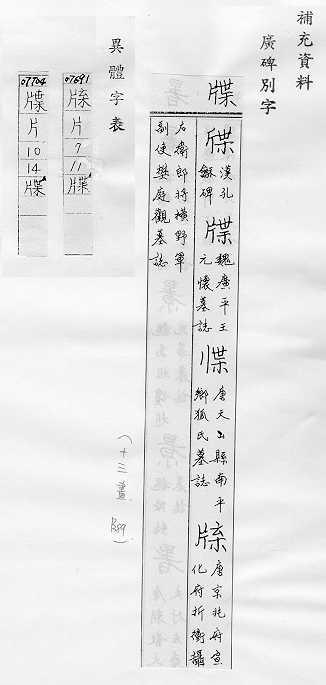 補充資料
廣碑別字
牒
牒 漢孔龢碑
牒 魏廣平王元懷墓誌
牒 唐天山縣南平鄉狐氏墓誌
牒 唐京兆府宣化府折衝攝
右衛郎將橫野軍副使樊庭觀墓誌
(十三畫 B59)
異體字表
07691
片
7
11
牒
07704
牒
片
10
14
牒